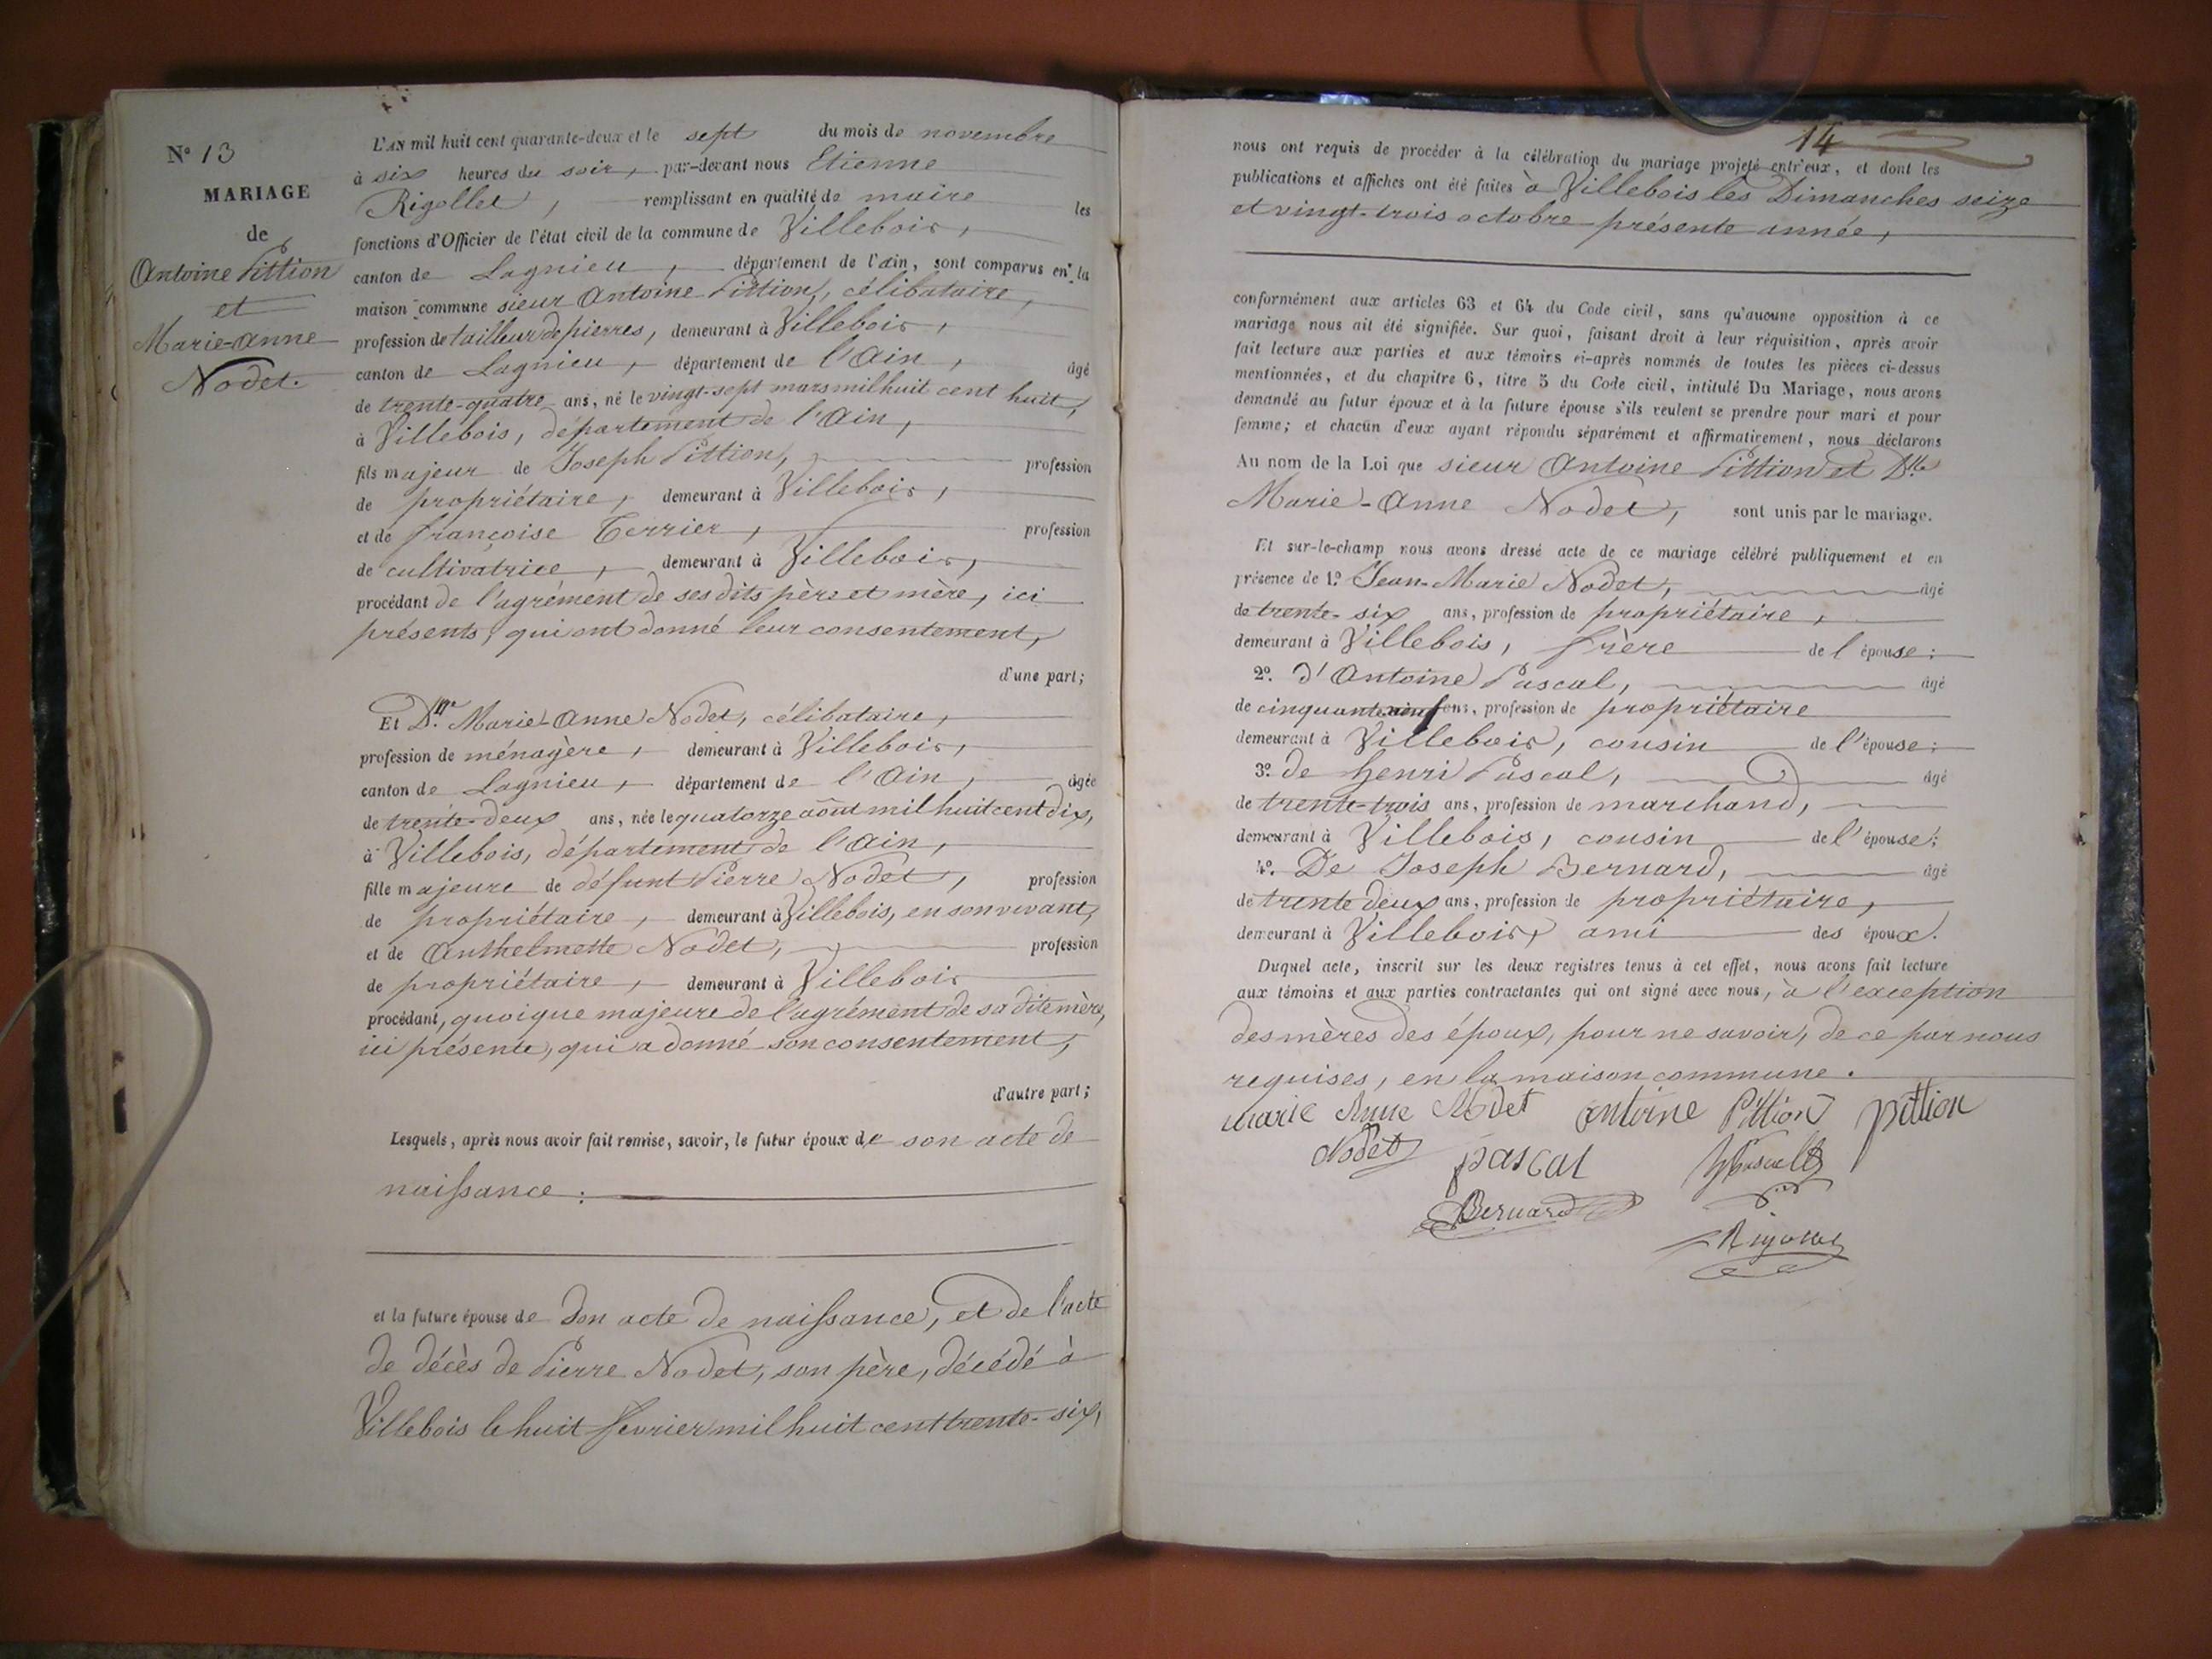 N° 13
MARIAGE
de
Antoine Pittion
et
Marie-Anne
Nodet.
L'AN mil huit cent quarante-deux et le sept du mois de novembre
à six heures du soir, par-devant nous Etienne
Rigollet, remplissant en qualité de maire les
fonctions d'Officier de l'état civil de la commune de Villebois,
canton de Lagnieu, département de l'Ain, sont comparus en la
maison commune sieur Antoine Pittion, célibataire,
profession de tailleur de pierres, demeurant à Villebois,
canton de Lagnieu, département de l'Ain, âgé
de trente-quatre ans, né le vingt-sept mars mil huit cent huit,
à Villebois, département de l'Ain,
fils majeur de Joseph Pittion, profession
de propriétaire, demeurant à Villebois,
et de françoise Terrier, profession
de cultivatrice, demeurant à Villebois,
procédant de l'agrément de ses dits père et mère, ici
présents, qui ont donné leur consentement,
d'une part;
Et Dlle Marie-Anne Nodet, célibataire,
profession de ménagère, demeurant à Villebois,
canton de Lagnieu, département de l'Ain, âgée
de trente-deux ans, née le quatorze août mil huit cent dix,
à Villebois, département de l'Ain,
fille majeure de défunt Pierre Nodet, profession
de propriétaire, demeurant à Villebois, en son vivant,
et de Anthelmette Nodet, profession
de propriétaire, demeurant à Villebois
procédant, quoique majeure de l'agrément de sa dite mère,
ici présente, qui a donné son consentement,
d'autre part;
Lesquels, après nous avoir fait remise, savoir, le futur époux de son acte de
naissance:
et la future épouse de son acte de naissance, et de l'acte
de décès de Pierre Nodet, son père, décédé à
Villebois le huit fevrier mil huit cent trente-six,
14
nous ont requis de procéder à la célébration du mariage projeté entr'eux, et dont les
publications et affiches ont été faites à Villebois les Dimanches seize
et vingt-trois octobre présente année,
conformément aux articles 63 et 64 du Code civil, sans qu'aucune opposition à ce
mariage nous ait été signifiée. Sur quoi, faisant droit à leur réquisition, après avoir
fait lecture aux parties et aux témoins ci-après nommés de toutes les pièces ci-dessus
mentionnées, et du chapitre 6, titre 5 du Code civil, intitulé Du Mariage, nous avons
demandé au futur époux et à la future épouse s'ils veulent se prendre pour mari et pour
femme; et chacun d'eux ayant répondu séparément et affirmativement, nous déclarons
Au nom de la Loi que sieur Antoine Pittion et Dlle
Marie-Anne Nodet, sont unis par le mariage.
Et sur-le-champ nous avons dressé acte de ce mariage célébré publiquement et en
présence de 1° Jean-Marie Nodet, âgé
de trente-six ans, profession de propriétaire,
demeurant à Villebois, frère de l'épouse;
2° d'Antoine Pascal, âgé
de cinquante neuf ans, profession de propriétaire
demeurant à Villebois, cousin de l'épouse;
3° de henri Pascal, âgé
de trente-trois ans, profession de marchand,
demeurant à Villebois, cousin de l'épouse;
4° De Joseph Bernard, âgé
de trente deux ans, profession de propriétaire,
demeurant à Villebois, ami des époux.
Duquel acte, inscrit sur les deux registres tenus à cet effet, nous avons fait lecture
aux témoins et aux parties contractantes qui ont signé avec nous, à l'exception
des mères des époux, pour ne savoir, de ce par nous
requises, en la maison commune.
marie Anne Nodet antoine Pittion pittion
Nodet pascal hPascal
Bernard
Rigollet